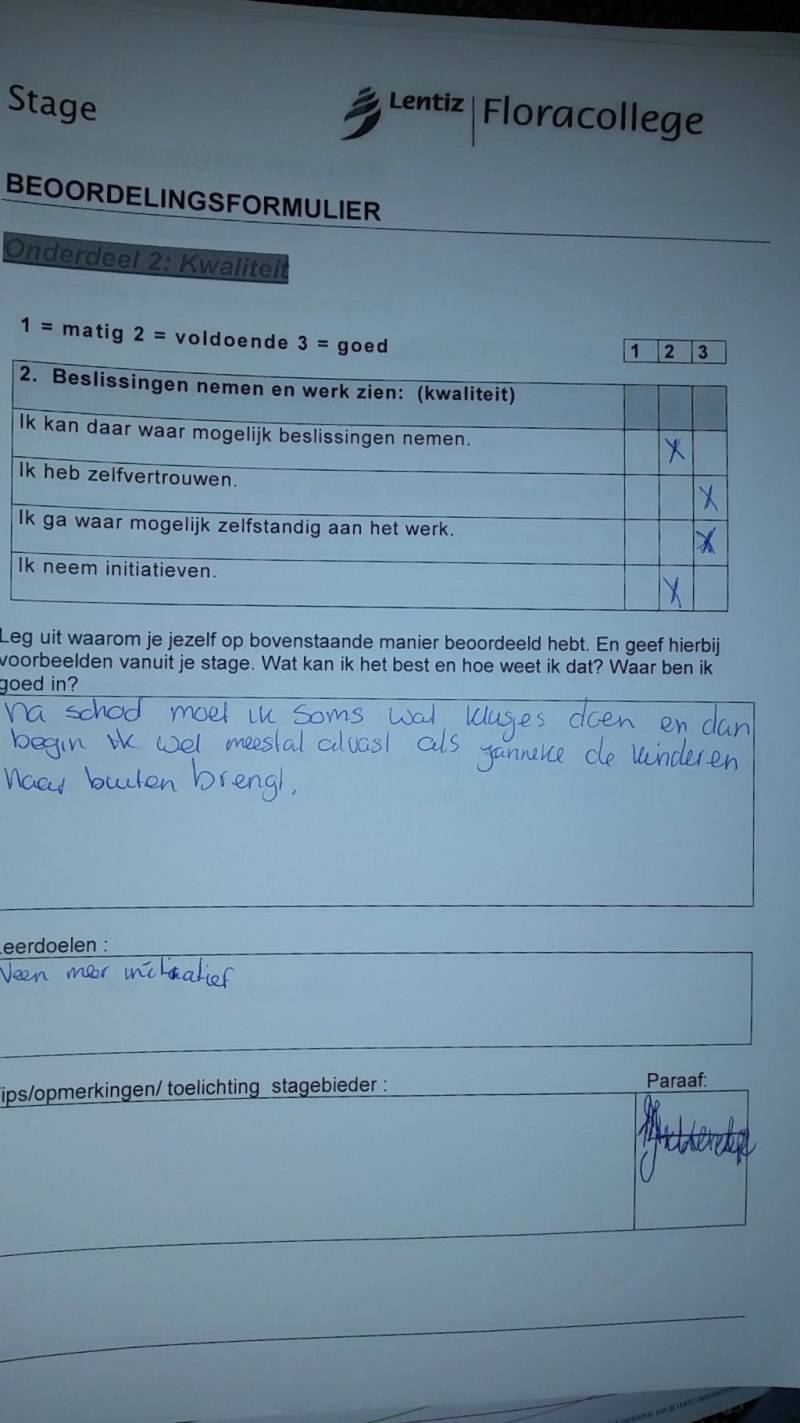 Stage
Lentiz | Floracollege
BEOORDELINGSFORMULIER
Onderdeel 2: Kwaliteit
1 = matig 2 = voldoende 3 = goed
1 2 3
2. Beslissingen nemen en werk zien: (kwaliteit)
Ik kan daar waar mogelijk beslissingen nemen. X
Ik heb zelfvertrouwen. X
Ik ga waar mogelijk zelfstandig aan het werk. X
Ik neem initiatieven. X
Leg uit waarom je jezelf op bovenstaande manier beoordeeld hebt. En geef hierbij
voorbeelden vanuit je stage. Wat kan ik het best en hoe weet ik dat? Waar ben ik
goed in?
na school moet ik soms wat klusjes doen en dan
begin ik wel meestal alvast als janneke de kinderen
naar buiten brengt.
eerdoelen :
Neem meer initiatief
ips/opmerkingen/ toelichting stagebieder :
Paraaf: